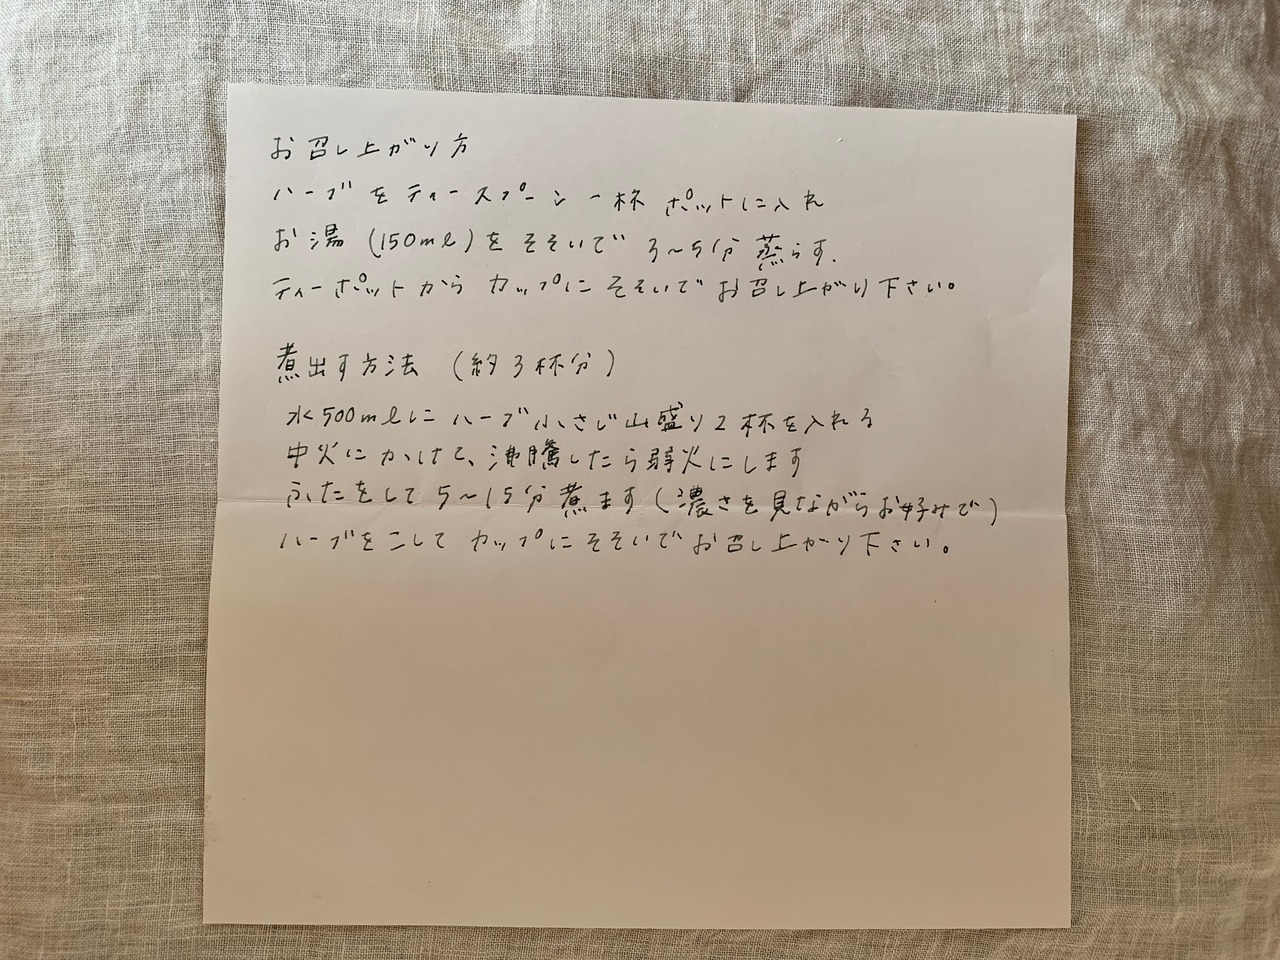 お召し上がり方
ハーブをティースプーン一杯 ポットに入れ
お湯 (150ml)をそそいで 3~5分 蒸らす.
ティーポットから カップにそそいでお召し上がり下さい。
煮出す方法 (約3杯分)
水500mlにハーブ小さじ山盛り2杯を入れる
中火にかけて、沸騰したら弱火にします
ふたをして5~15分煮ます(濃さを見ながらお好みで)
ハーブをこしてカップにそそいでお召し上がり下さい。